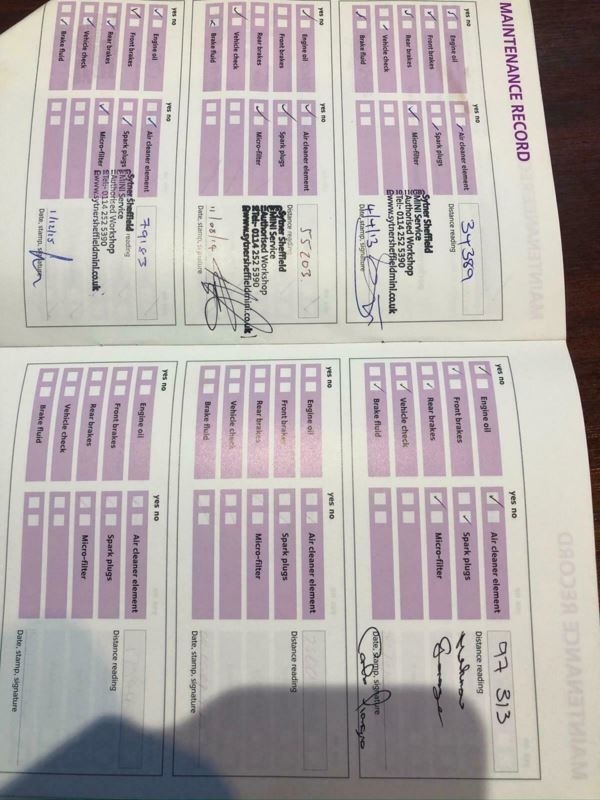 MAINTENANCE RECORD
yes no
Engine oil
Front brakes
Rear brakes
Vehicle check
Brake fluid
yes no
Air cleaner element
Spark plugs
Micro-filter
Distance reading
34389
Sytner Sheffield
MINI Service
Authorised Workshop
Tel:- 0114 252 5390
www.sytnersheffieldmini.co.uk
4/4/13
Date, stamp, signature
yes no
Engine oil
Front brakes
Rear brakes
Vehicle check
Brake fluid
yes no
Air cleaner element
Spark plugs
Micro-filter
Distance reading
55203
Sytner Sheffield
MINI Service
Authorised Workshop
Tel:- 0114 252 5390
www.sytnersheffieldmini.co.uk
Date, stamp, signature
yes no
Engine oil
Front brakes
Rear brakes
Vehicle check
Brake fluid
yes no
Air cleaner element
Spark plugs
Micro-filter
reading
79183
Sytner Sheffield
MINI Service
Authorised Workshop
Tel:- 0114 252 5390
www.sytnersheffieldmini.co.uk
1/12/15
Date, stamp, signature
yes no
Engine oil
Front brakes
Rear brakes
Vehicle check
Brake fluid
yes no
Air cleaner element
Spark plugs
Micro-filter
Distance reading
97 313
Date, stamp, signature
yes no
Engine oil
Front brakes
Rear brakes
Vehicle check
Brake fluid
yes no
Air cleaner element
Spark plugs
Micro-filter
Distance reading
Date, stamp, signature
yes no
Engine oil
Front brakes
Rear brakes
Vehicle check
Brake fluid
yes no
Air cleaner element
Spark plugs
Micro-filter
Distance reading
Date, stamp, signature